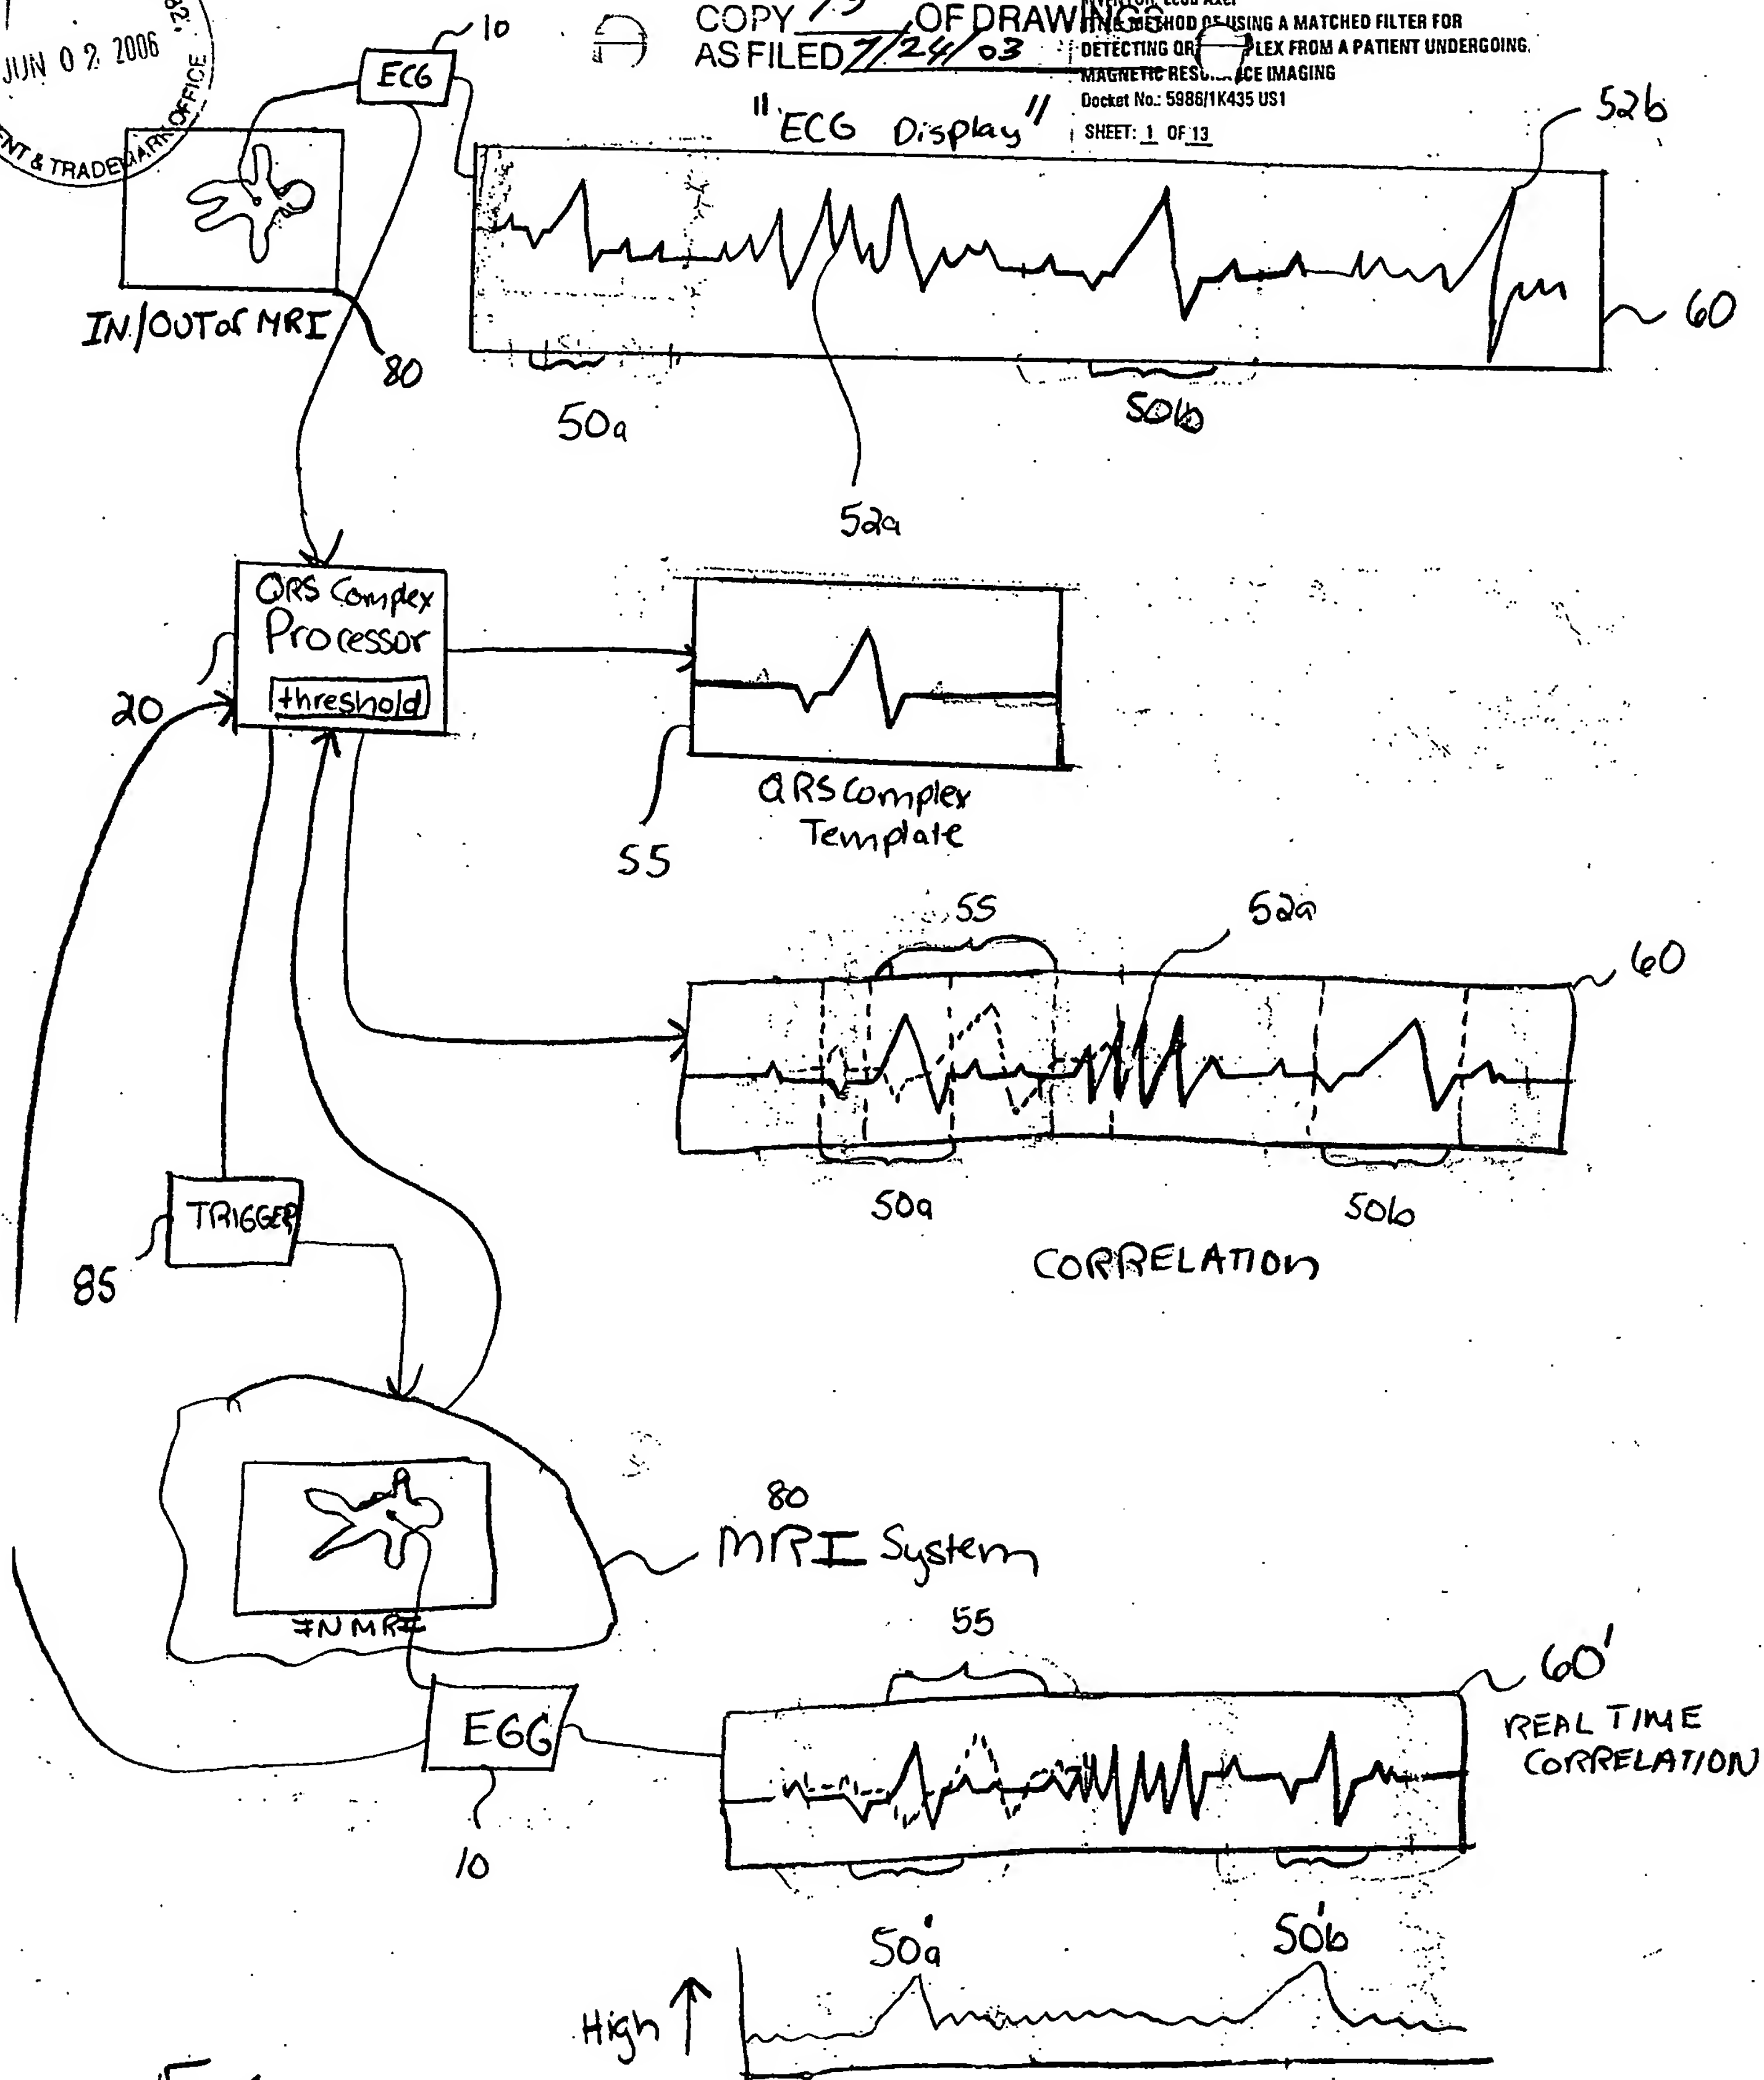 JUN 02 2006
ENT & TRADEMARK OFFICE
COPY OF DRAWINGS
AS FILED 7/24/03
METHOD OF USING A MATCHED FILTER FOR
DETECTING FROM A PATIENT UNDERGOING
MAGNETIC IMAGING
Docket No.: 5986/1K435 US1
SHEET: 1 OF 13
10
ECG
"ECG Display"
52b
IN/OUT OF MRI
80
60
50a
50b
52a
QRS Complex
Processor
threshold
20
QRS Complex
Template
55
55
52a
60
50a
50b
CORRELATION
TRIGGER
85
80
MRI System
IN MRI
55
60'
REAL TIME
CORRELATION
EGG
10
50'a
50'b
High